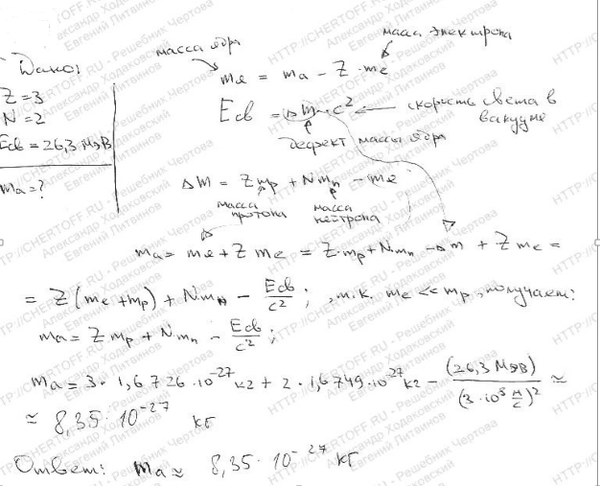 Дано:
Z = 3
N = 2
Eсв = 26,3 МэВ
ma = ?
масса ядра
масса электрона
mя = ma - Z · me
Eсв = Δm · c² ← скорость света в вакууме
дефект массы ядра
Δm = Z mp + N mn - mя
масса протона
масса нейтрона
ma = mя + Z me = Z · mp + N mn - Δm + Z me =
= Z (me + mp) + N mn - Eсв/c² ; , т.к. me << mp, получаем:
ma = Z mp + N mn - Eсв/c² ;
ma = 3 · 1,6726 · 10⁻²⁷ кг + 2 · 1,6749 · 10⁻²⁷ кг - (26,3 МэВ)/(3 · 10⁸ м/с)² ≈
≈ 8,35 · 10⁻²⁷ кг
Ответ: ma ≈ 8,35 · 10⁻²⁷ кг
HTTP://CHERTOFF.RU - Решебник Чертова
Александр Ходаковский
Евгений Литвинов